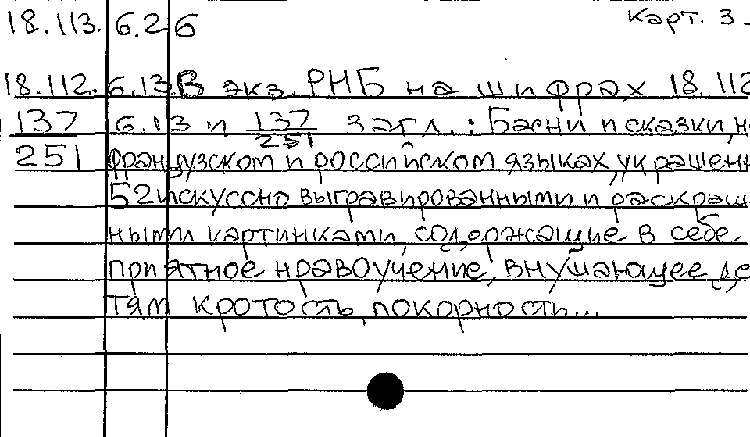 18.113. 6.2 6 Карт. 3
18.112. 6.13. В экз. РНБ на шифрах 18.112
137 6.13 и 137/251 загл.: Басни и сказки, н
251 французском и российском языках, украшенн
52 искуссно выгравированными и раскраш
ными картинками, содержащие в себе
приятное нравоучение, внушающее де
тям кротость, покорность...